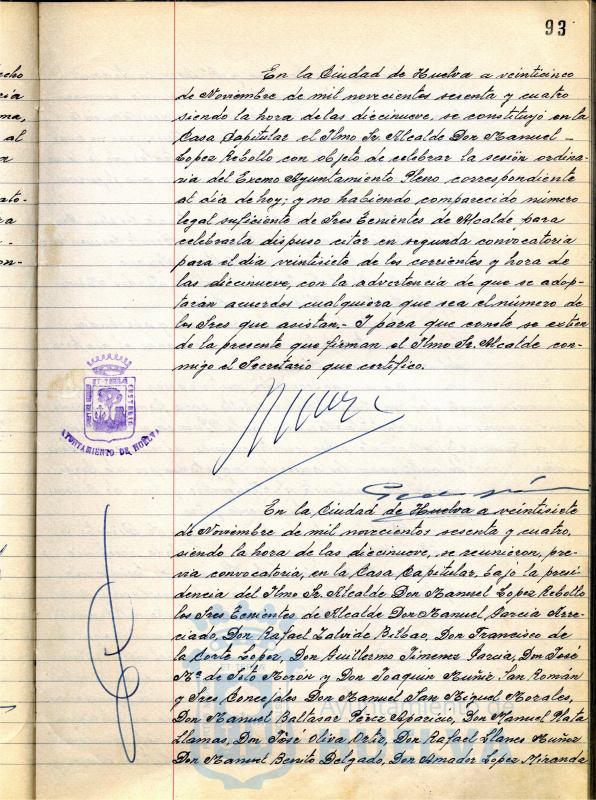 93
En la Ciudad de Huelva a veinticinco
de Noviembre de mil novecientos sesenta y cuatro
siendo la hora de las diecinueve, se constituyó en la
Casa Capitular el Ilmo Sr. Alcalde Don Manuel
Lopez Rebollo con objeto de celebrar la sesión ordina-
ria del Excmo Ayuntamiento Pleno correspondiente
al día de hoy; y no habiendo comparecido número
legal suficiente de Sres Tenientes de Alcalde para
celebrarla dispuso citar en segunda convocatoria
para el dia veintisiete de los corrientes y hora de
las diecinueve, con la advertencia de que se adop-
tarán acuerdos cualquiera que sea el número de
los Sres que asistan.- Y para que conste se extien
de la presente que firman el Ilmo Sr. Alcalde con-
migo el Secretario que certifico.
AYUNTAMIENTO DE HUELVA
En la Ciudad de Huelva a veintisiete
de Noviembre de mil novecientos sesenta y cuatro,
siendo la hora de las diecinueve, se reunieron, pre-
via convocatoria, en la Casa Capitular, bajo la presi-
dencia del Ilmo Sr. Alcalde Don Manuel Lopez Rebollo
los Sres Tenientes de Alcalde Don Manuel Garcia Arre-
ciado, Don Rafael Bilbao, Don Francisco de
la Corte Lopez, Don Guillermo Jimenez Garcia, Don José
Mª de Soto Morón y Don Joaquin Muñiz San Román
y Sres Concejales Don Manuel San Miguel Morales,
Don Manuel Baltasar Pérez Aparicio, Don Manuel Plata
Llamas, Don José Oliva Ortiz, Don Rafael Llanes Muñoz
Don Manuel Benito Delgado, Don Amador Lopez Miranda
Ayuntamiento de
HUELVA